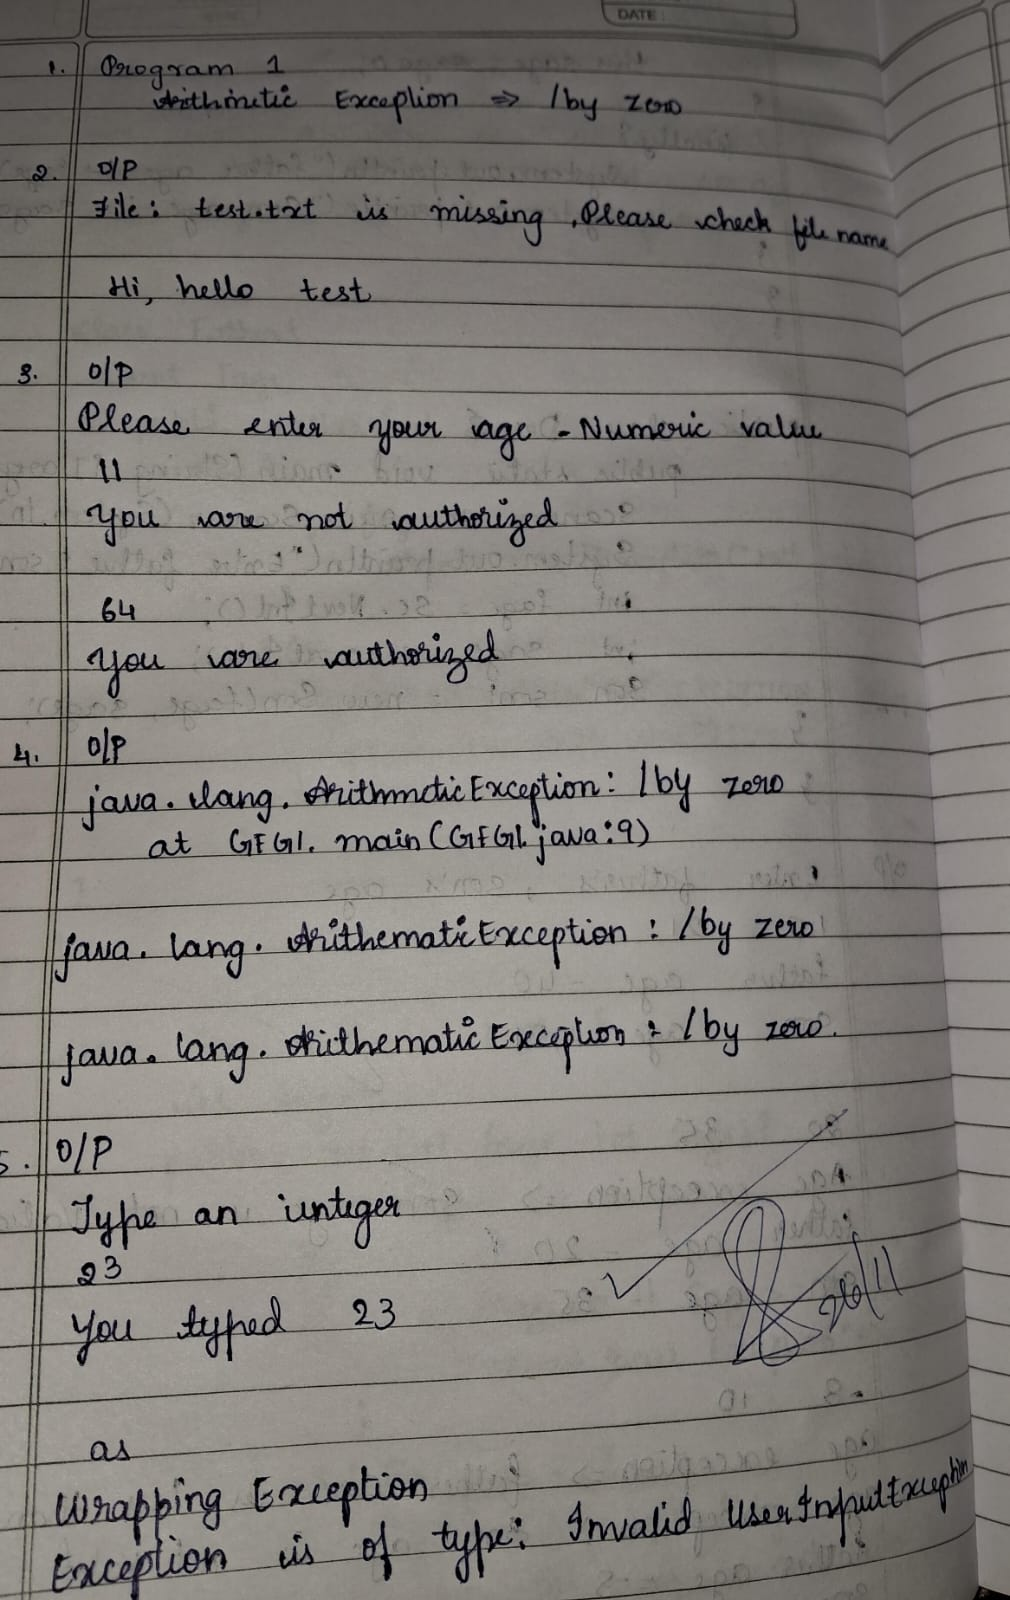 DATE
1. Program 1
Arithmetic Exception => / by zero
2. O/P
File: test.txt is missing, Please check file name
Hi, hello test
3. O/P
Please enter your age - Numeric value
11
You are not authorized
64
You are authorized
4. O/P
java.lang.ArithmeticException: / by zero
at GFG1.main(GFG1.java:9)
java.lang.ArithematicException: / by zero
java.lang.ArithematicException: / by zero.
5. O/P
Type an integer
23
You typed 23
26/11
as
Wrapping Exception
Exception is of type: Invalid UserInputException